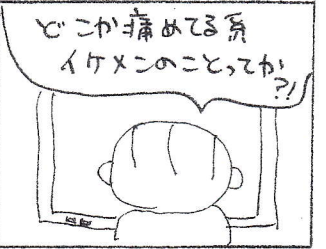 どこか痛めてる系
イケメンのことってか
?!